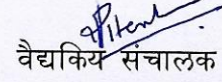 वैद्यकिय संचालक